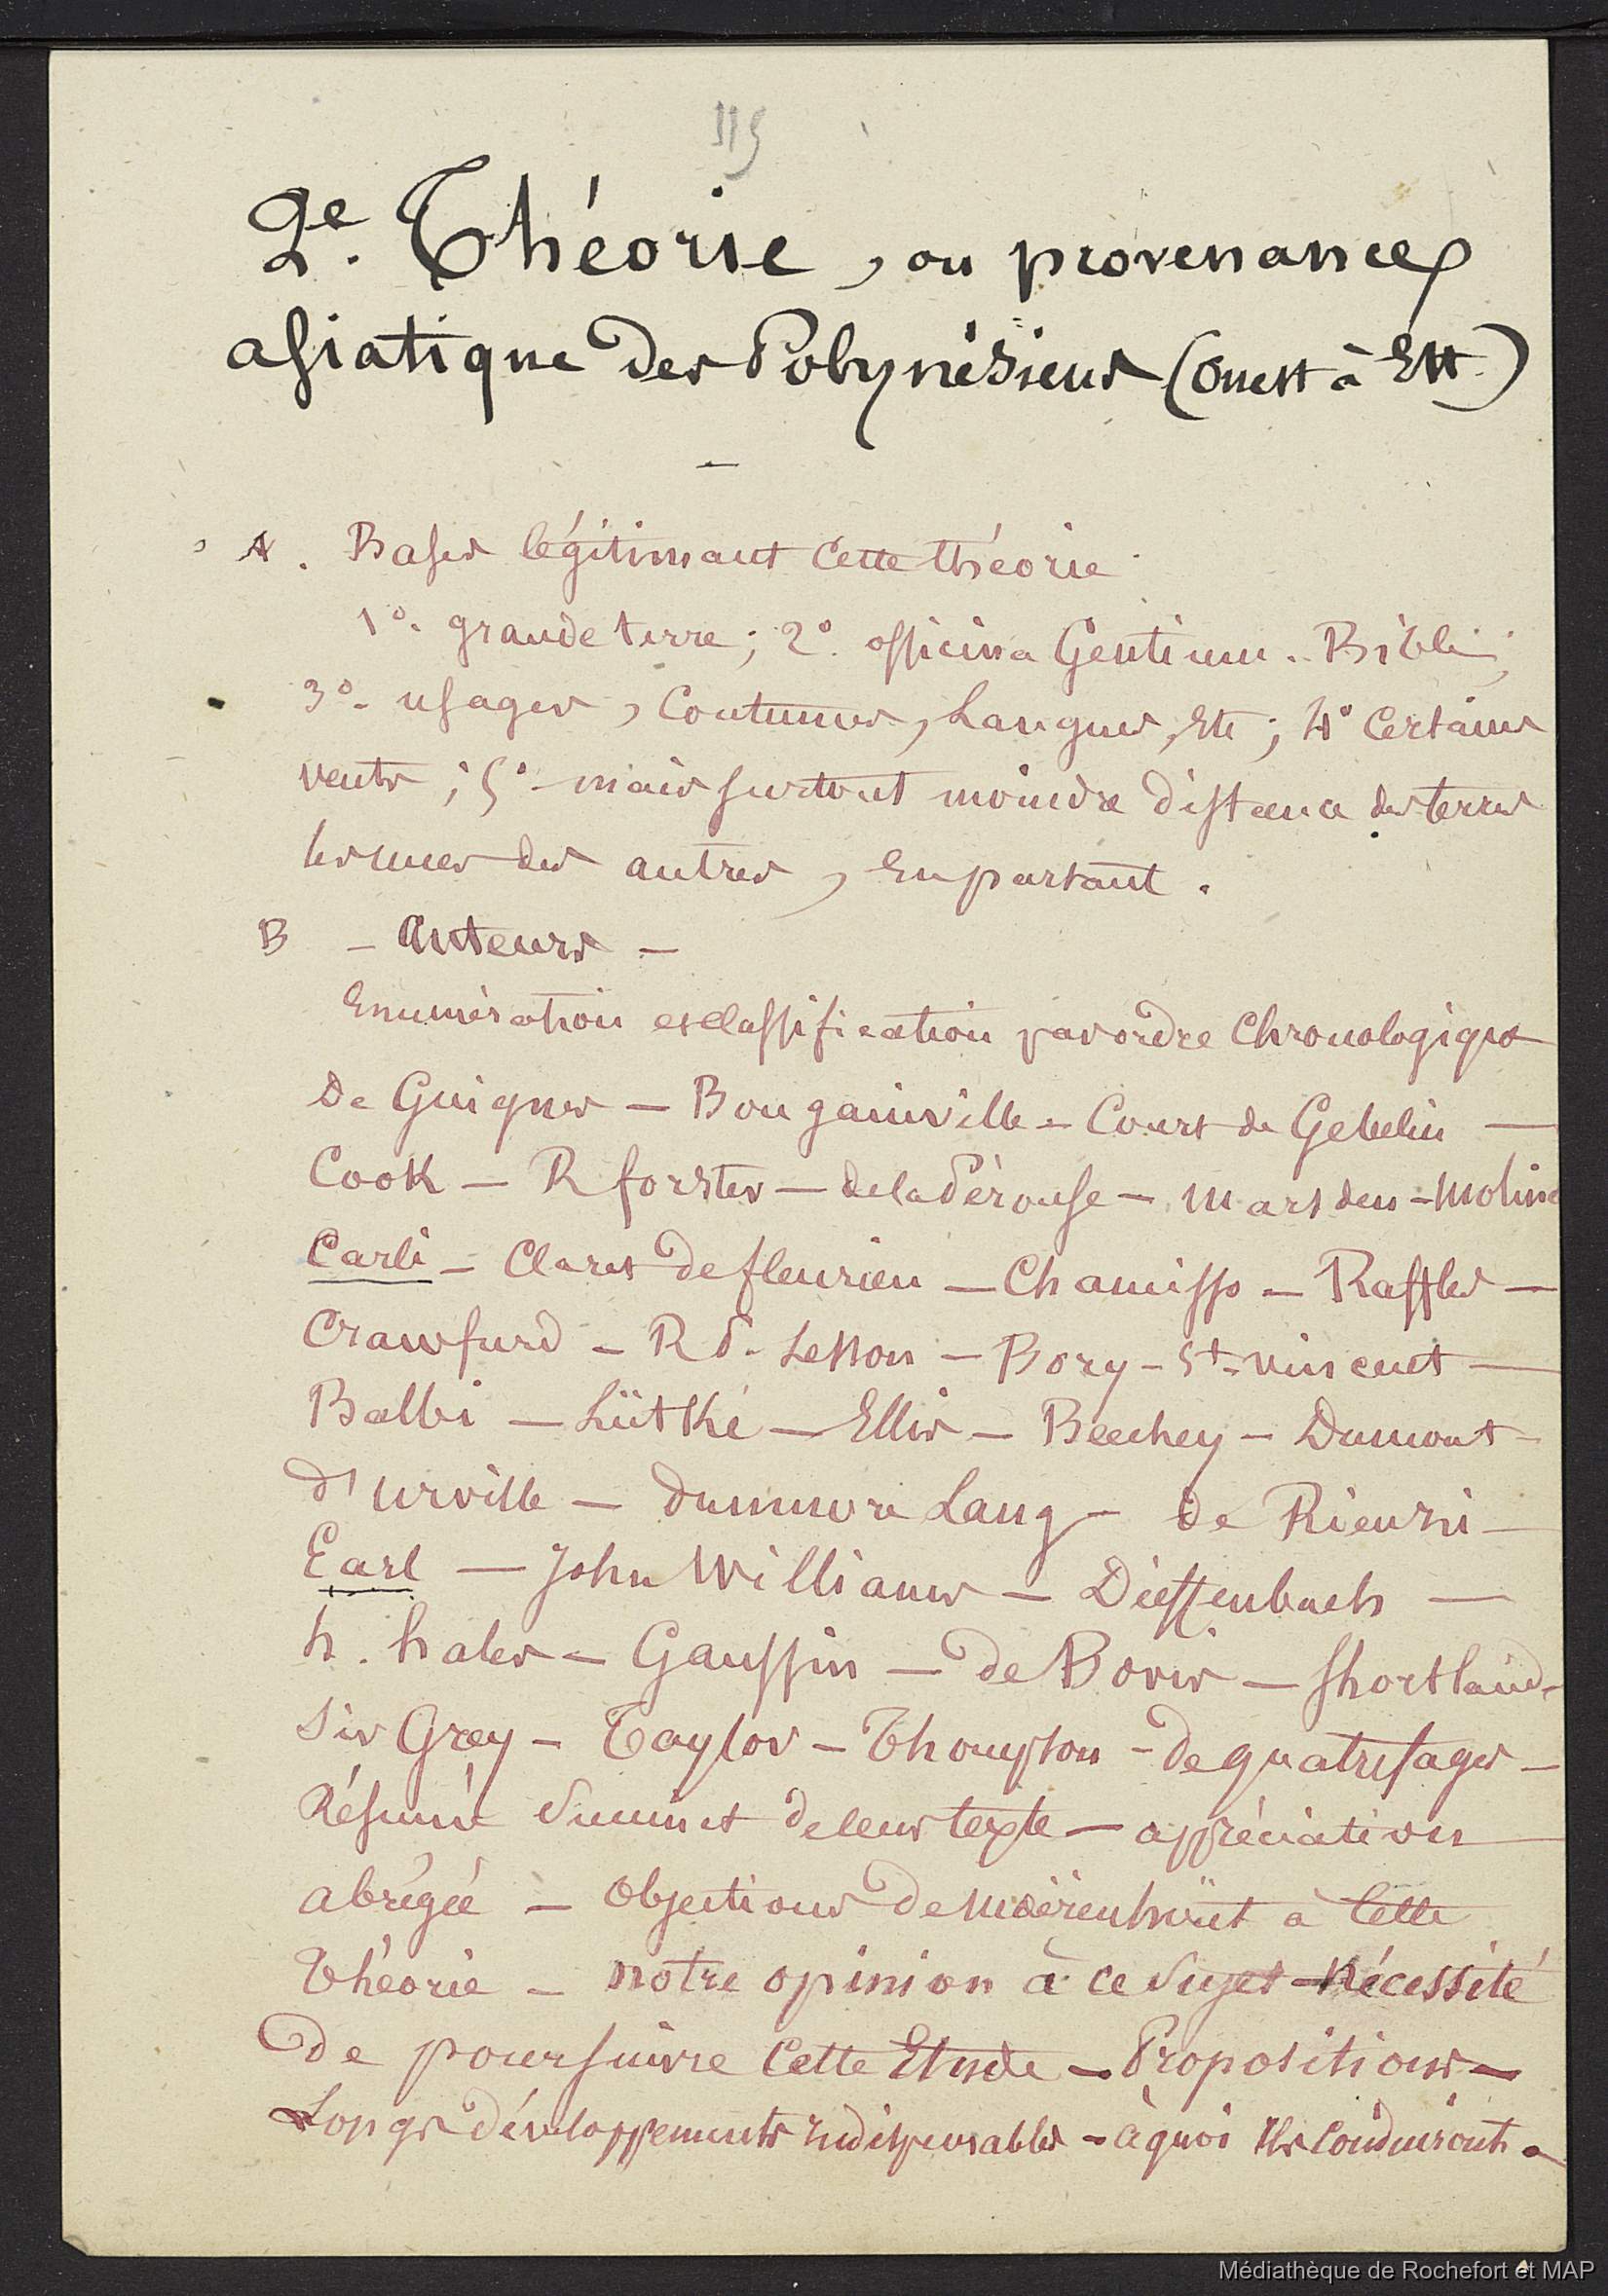 115
2e. Théorie, ou provenance
asiatique des Polynésiens (Ouest à Est.)
A. Bases légitimant cette théorie.
1o. grande terre; 2o. officina Gentium. Bible;
3o. usages, Coutumes, Langues, Etc; 4o Certains
vents; 5o. mais surtout moindre distance des terres
les unes des autres, en partant.
B - Auteurs -
Enumération et classification par ordre Chronologique
De Guignes - Bougainville - Court de Gebelin -
Cook - R forster - de la Pérouse - Marsden - Molina
Carli - Claret de fleurieu - Chamisso - Raffles -
Crawfurd - R P. Lesson - Bory - St. Vincent -
Balbi - Lütké - Ellis - Beechey - Dumont -
d'urville - Dunmore Lang - de Rienzi -
Earl - John Williams - Dieffenbach -
h. hales - Gaussin - de Bovis - Shortland -
Sir Grey - Taylor - Thompson - de quatrefages -
Résumé succinct de leur texte - appréciation
abrégée - Objections de Moërenhoüt à Cette
Théorie - notre opinion à ce sujet - Nécessité
De poursuivre Cette Etude - Propositions -
Longs développements indispensables - à quoi Ils Conduiront -
Médiathèque de Rochefort et MAP